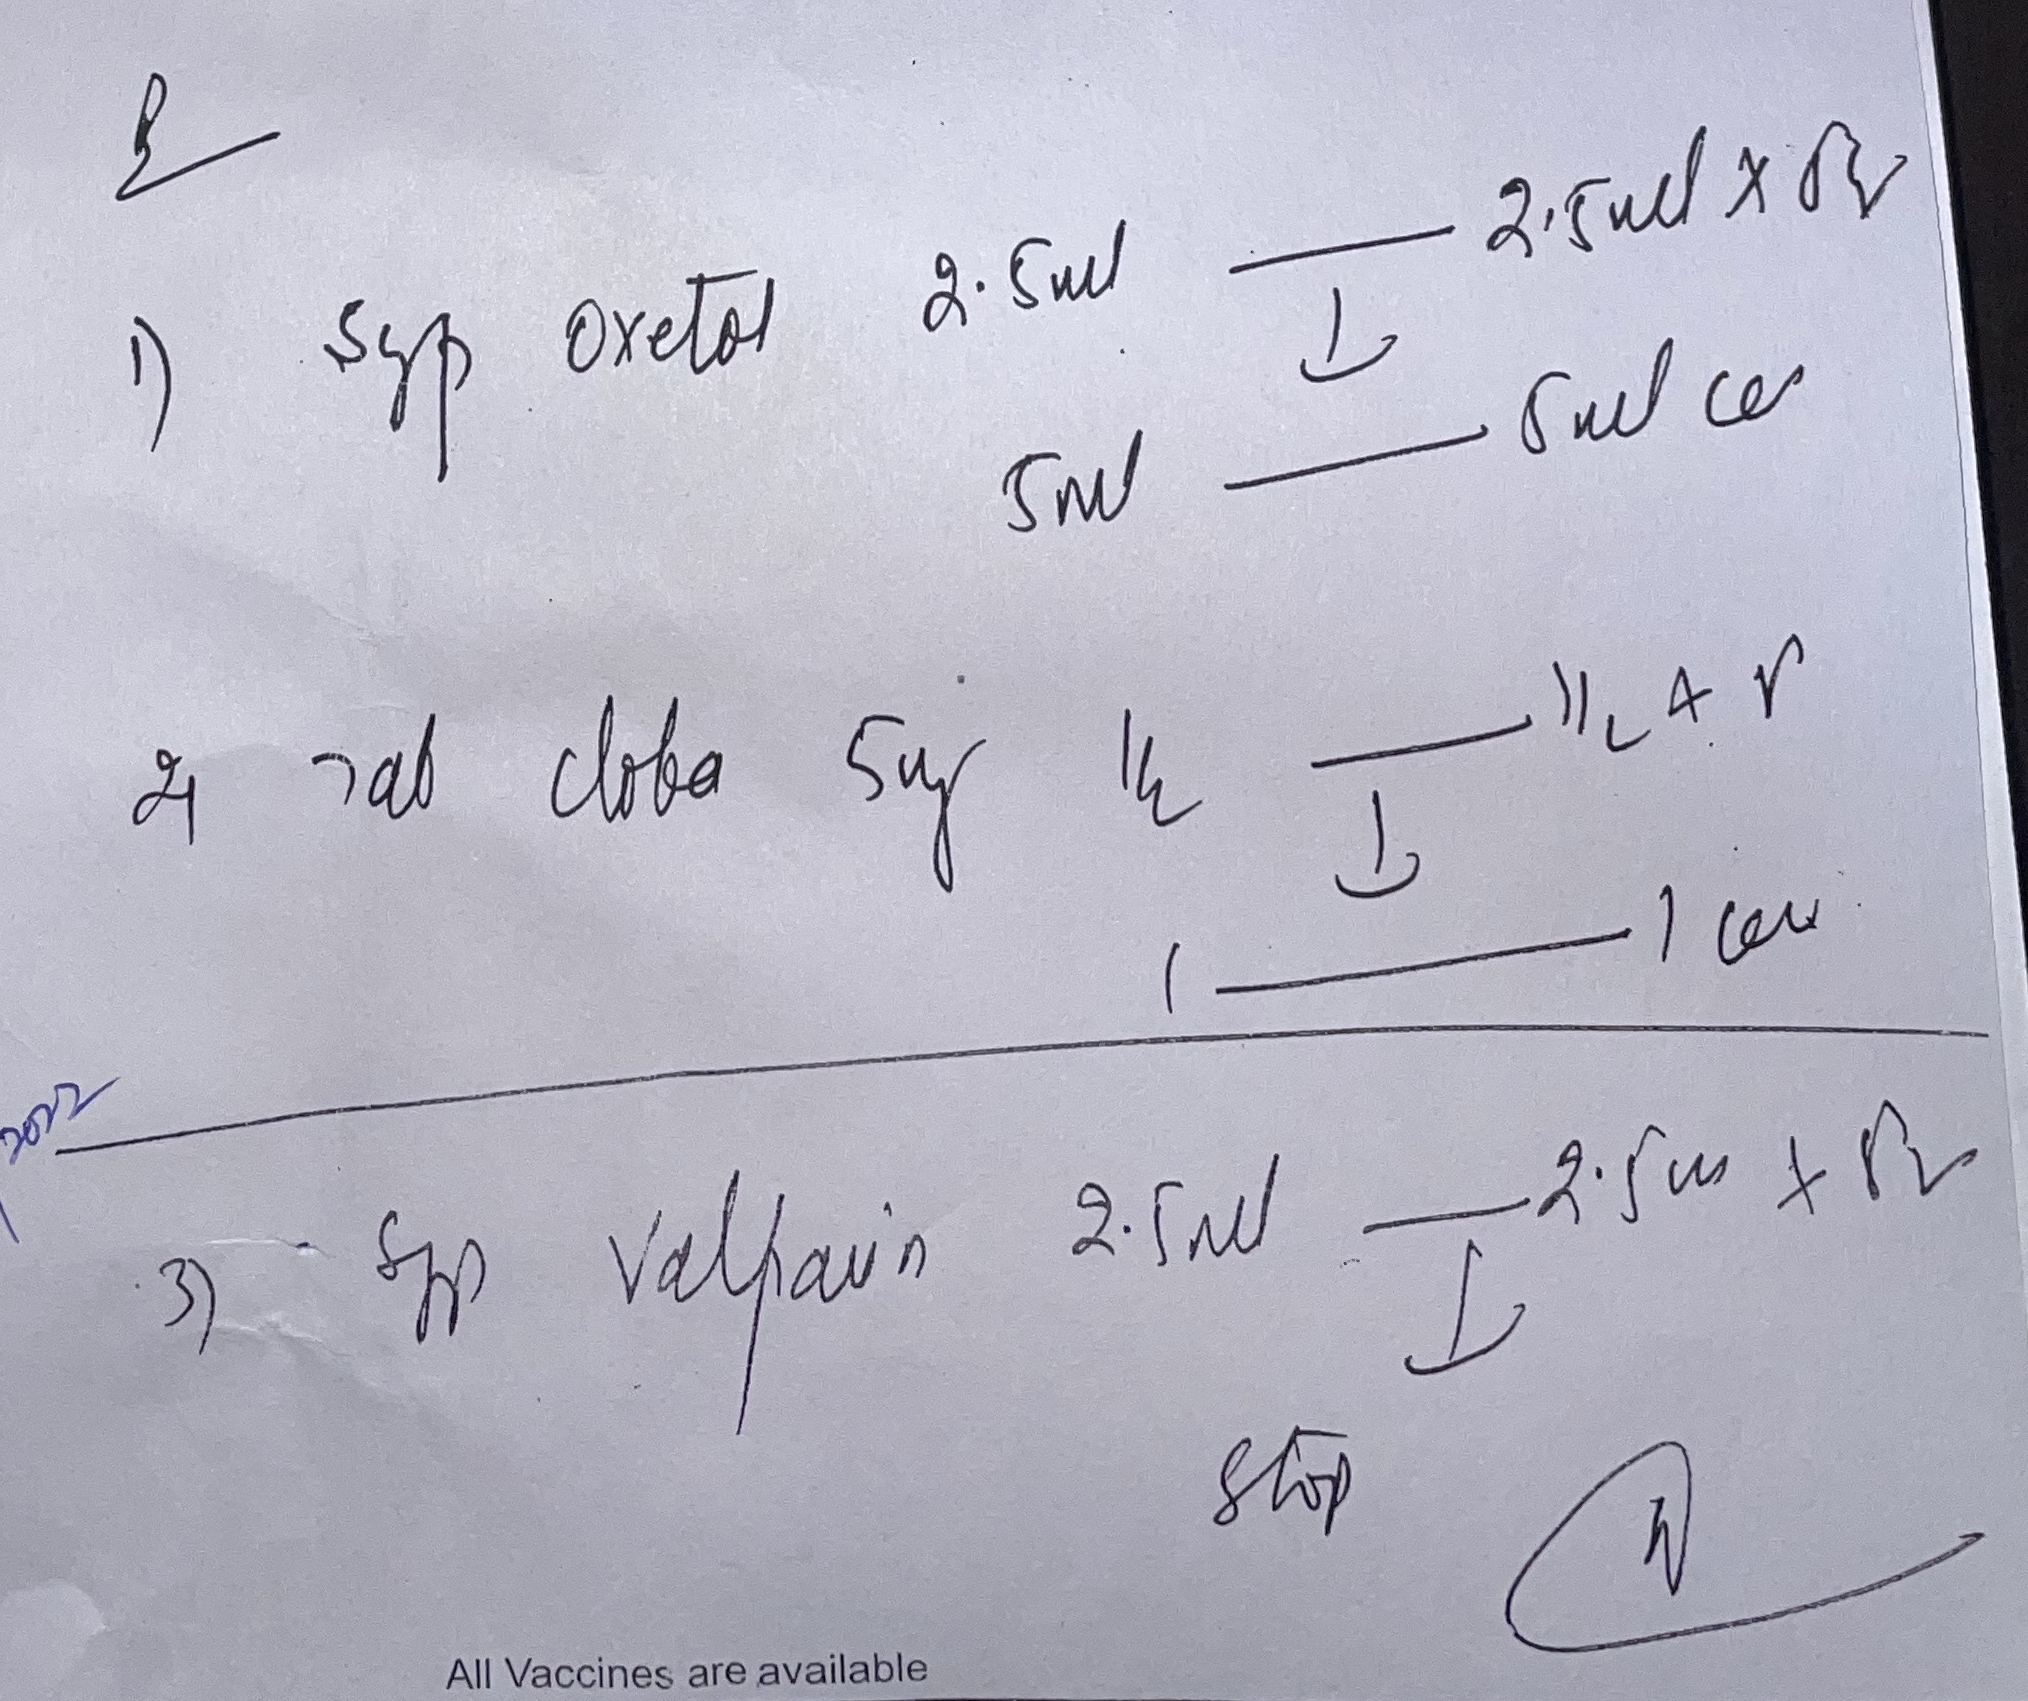 1) Syp Oxetol 2.5ml — 2.5ml x
↓
5ml — 5ml
2) Tab Cloba 5mg 1/2 — 1/2 x
↓
1 — 1
2022
3) Syp Valparin 2.5ml — 2.5ml x
↓
Stop
All Vaccines are available